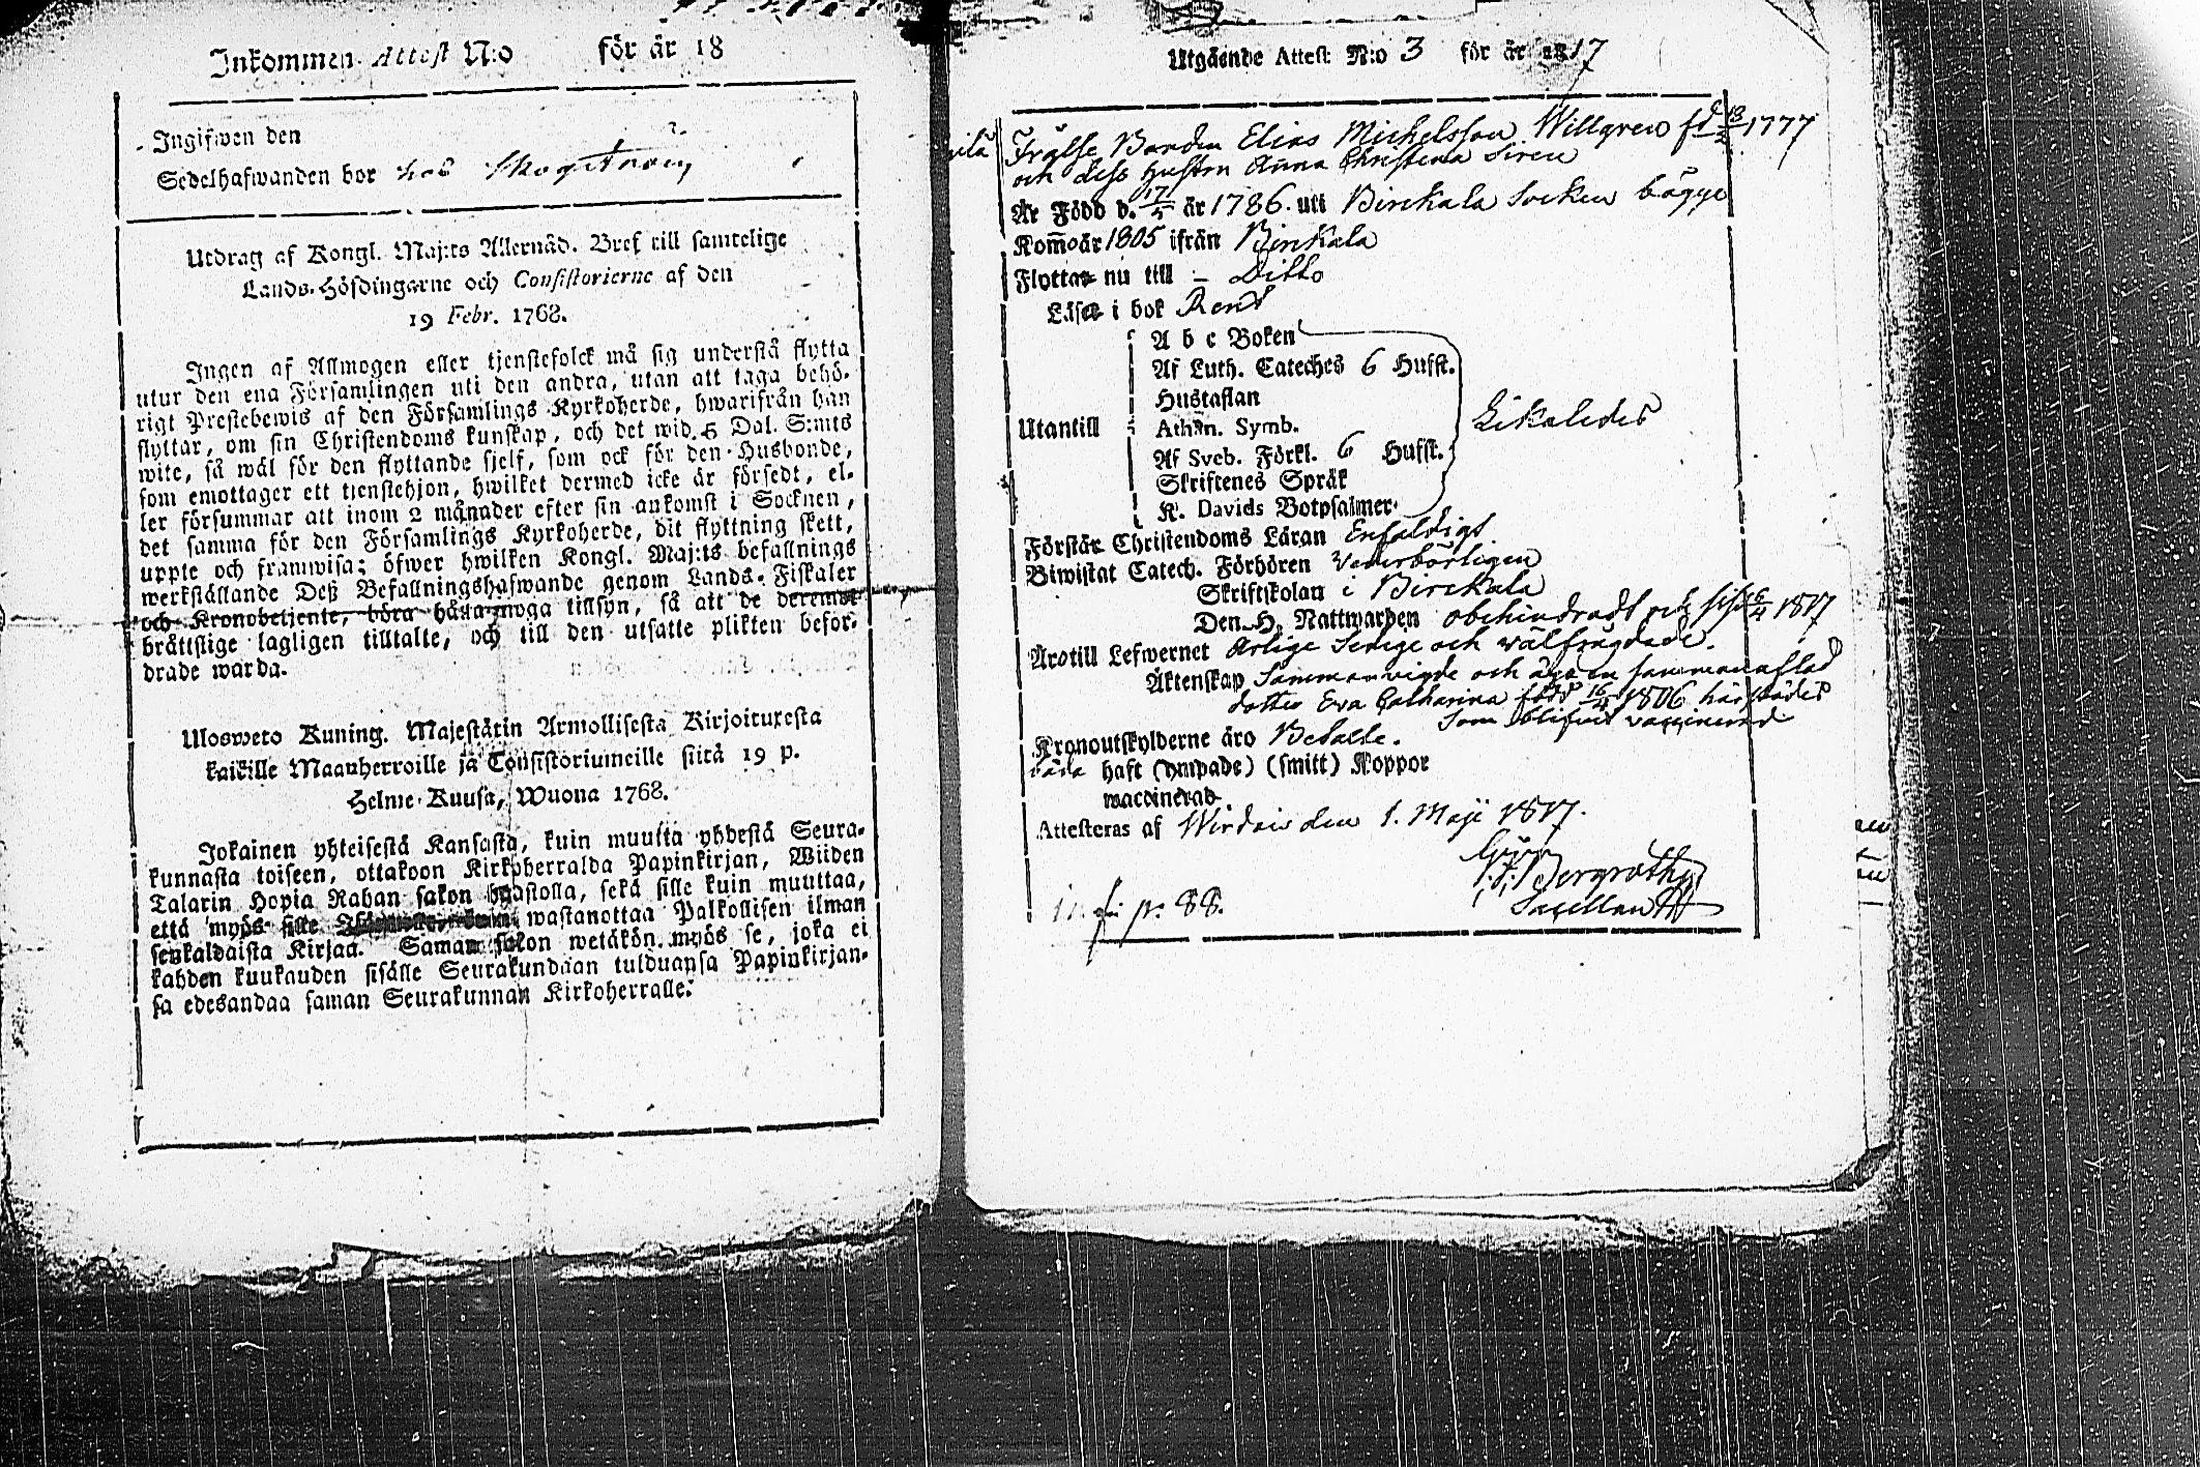 Inkommen Attest N:o för år 18
Ingifwen den
Sedelhafwanden bor hos
Utdrag af Kongl. Maj:ts Allernåd. Bref till samtelige
Lands-Höfdingarne och Consistorierne af den
19 Febr. 1768.
Ingen af Allmogen eller tjenstefolck må sig understå flytta
utur den ena Församlingen uti den andra, utan att taga behö-
rigt Prestebewis af den Församlings Kyrkoherde, hwarifrån han
flyttar, om sin Christendoms kunskap, och det wid 5 Dal. S:mts
wite, så wäl för den flyttande sjelf, som ock för den Husbonde,
som emottager ett tjenstehjon, hwilket dermed icke är försedt, el-
ler försummar att inom 2 månader efter sin ankomst i Socknen,
det samma för den Församlings Kyrkoherde, dit flyttning skett,
uppte och framwisa; öfwer hwilken Kongl. Maj:ts befallnings
werkställande Deß Befallningshafwande genom Lands-Fiskaler
och Kronobetjente, böra hålla noga tillsyn, så att de deremot
bråttslige lagligen tilltalte, och till den utsatte plikten befor-
drade warda.
Ulosweto Kuning. Majestätin Armollisesta Kirjoituxesta
kaikille Maanherroille ja Consistoriumeille siitä 19 p.
Helme-Kuusa, Wuona 1768.
Jokainen yhteisestä Kansasta, kuin muutta yhdestä Seura-
kunnasta toiseen, ottakoon Kirkoherralda Papinkirjan, Wiiden
Talarin Hopia Rahan sakon haastolla, sekä sille kuin muuttaa,
että myös sille wastanottaa Palkollisen ilman
senkaldaista Kirjaa. Saman sakon wetäkön myös se, joka ei
kahden kuukauden sisälle Seurakundaan tulduansa Papinkirjan-
sa edesandaa saman Seurakunnan Kirkoherralle.
Utgående Attest N:o 3 för år 1817
Frälse Bonden Elias Michelsson Willgren fd 13/2 1777
och dess Hustru Anna Christina Siren
Är Född d. 17/5 år 1786. uti Birckala Socken bägge
Kom̄o år 1805 ifrån Birkala
Flytta nu till - Ditto
Läsa i bok Rent
A b c Boken
Af Luth. Cateches 6 Hufst.
Hustaflan
Utantill Athan. Symb. Likaledes
Af Sveb. Förkl. 6 Hufst.
Skriftenes Språk
K. Davids Botpsalmer
Förstår Christendoms Läran Enfaldigt.
Biwistat Catech. Förhören Vederbörligen
Skriftskolan i Birckala
Den H. Nattwarden obehindradt och sist 6/4 1817
Äro till Lefwernet Ärlige Sedige och wälfrägdade.
Äktenskap Sammanvigde och äga en sammanaflad
dotter Eva Catharina född 16/4 1806 härstädes
Som blifvit vaccinerad
Kronoutskylderne äro Betalte.
båda haft (ympade) (smitt) Koppor
waccinerad
Attesteras af Wirdois den 1. Maji 1817.
Bergroth
Sacellan
p. 88.